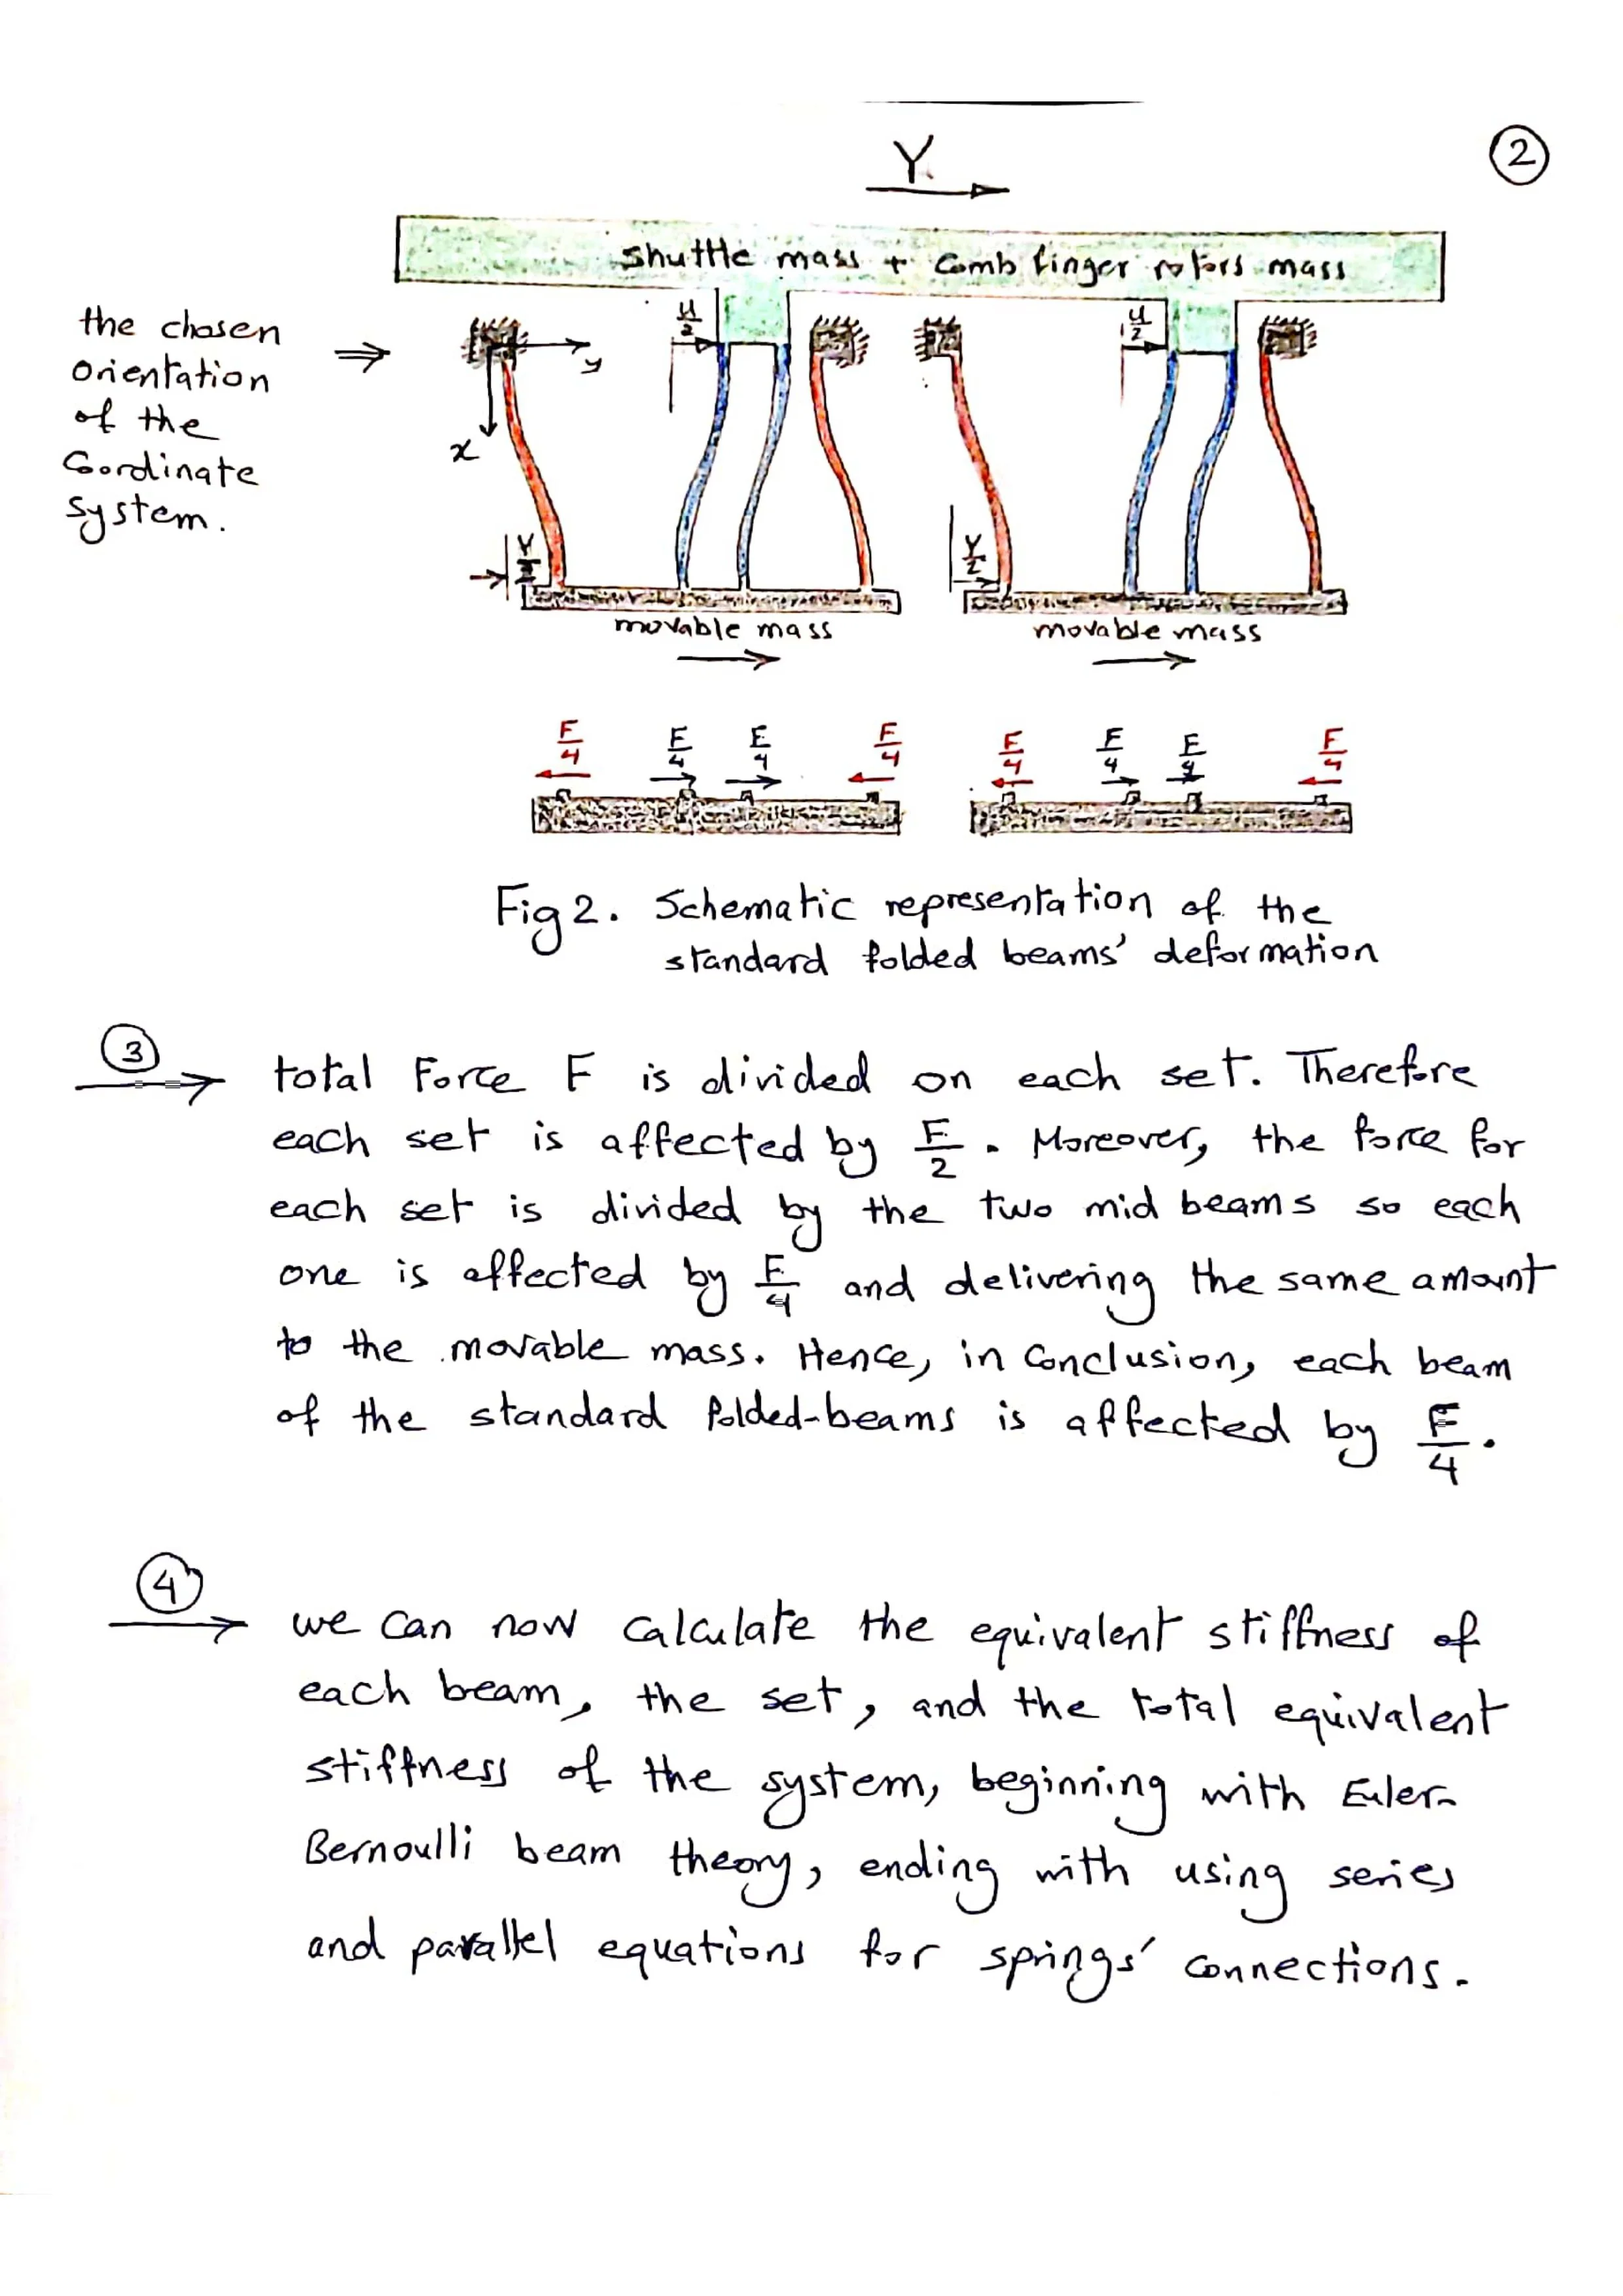 2
Y
shuttle mass + Comb finger rotors mass
the chosen
orientation
of the
Coordinate
system.
⇒
y
x
u/2
u/2
Y/2
Y/2
movable mass
movable mass
F/4 F/4 F/4 F/4 F/4 F/4 F/4 F/4
Fig 2. Schematic representation of the
standard folded beams' deformation
3 → total Force F is divided on each set. Therefore
each set is affected by F/2. Moreover, the force for
each set is divided by the two mid beams so each
one is affected by F/4 and delivering the same amount
to the movable mass. Hence, in Conclusion, each beam
of the standard folded-beams is affected by F/4.
4 → we can now calculate the equivalent stiffness of
each beam, the set, and the total equivalent
stiffness of the system, beginning with Euler-
Bernoulli beam theory, ending with using series
and parallel equations for springs' connections.